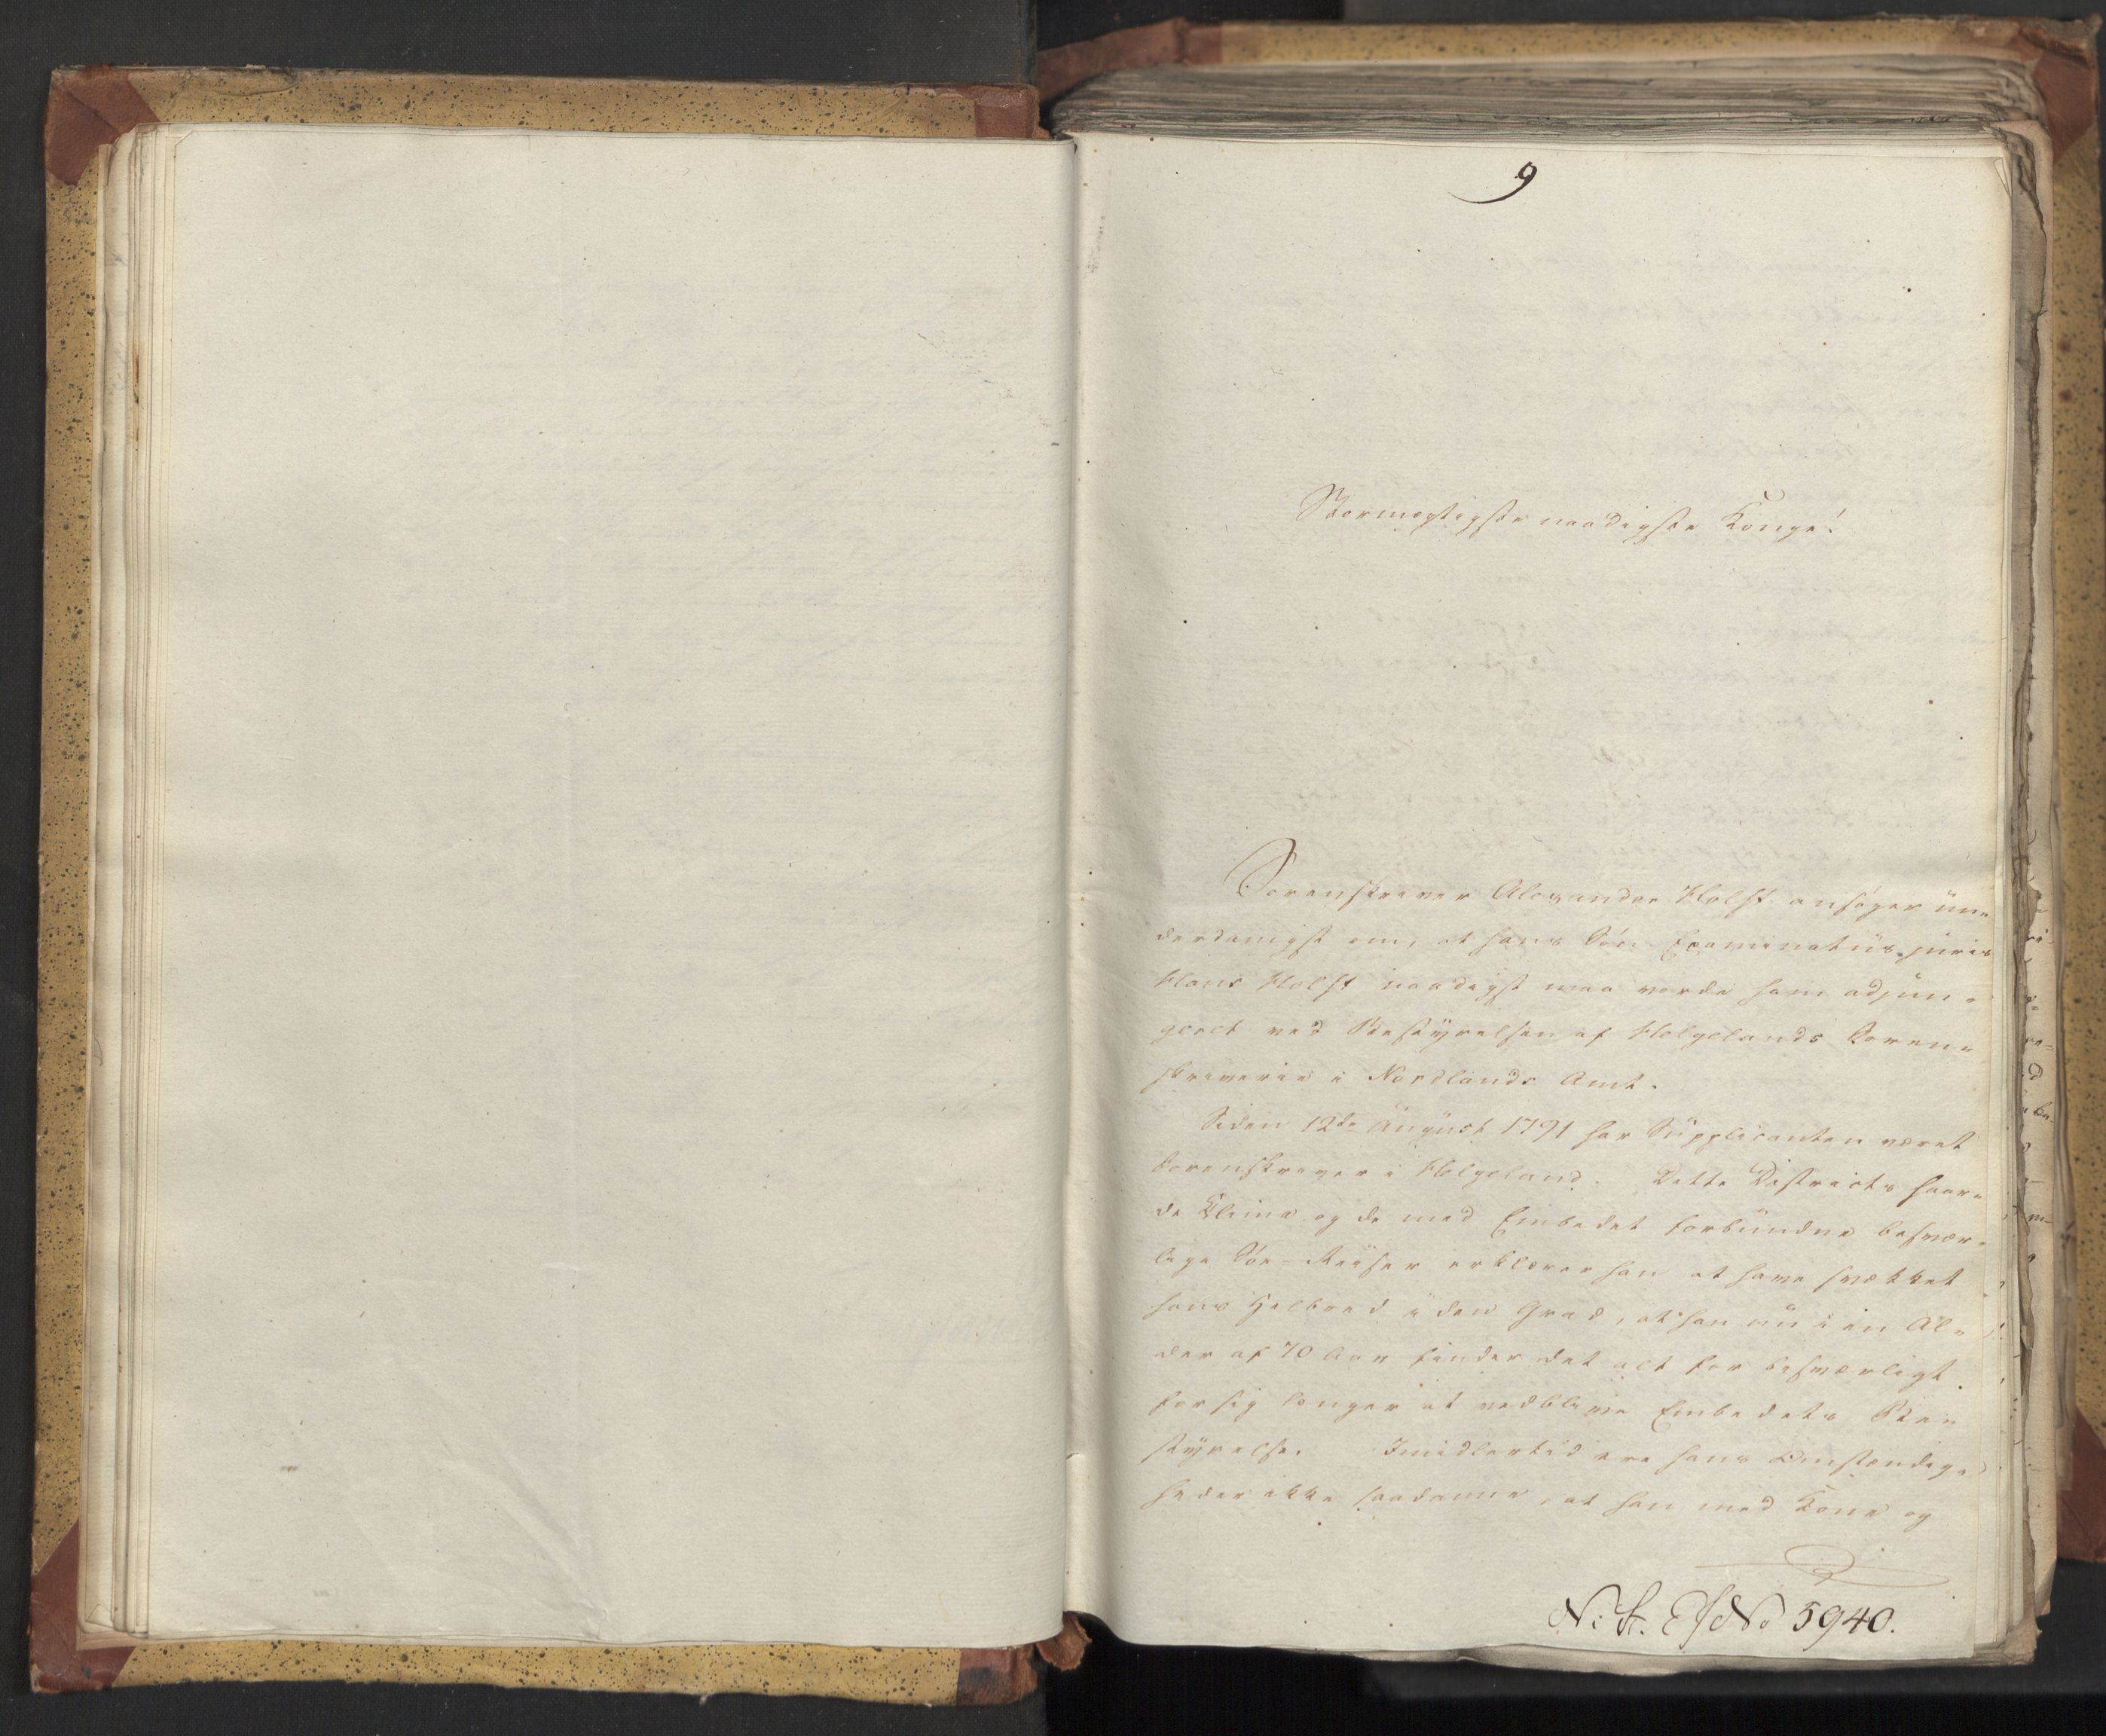 9
Stormægtigste naadigste Konge!
Sorenskriver Alexander Holst ansøger un=
derdanigst om, at hans Søn Examinatus juris
Hans Holst naadigst maa vorde ham adjun=
geret ved Bestyrelsen af Helgelands Soren=
skriverie i Nordlands Amt.
Siden 12te August 1791 har Supplicanten været
Sorenskriver i Helgeland. Dette Districts haar=
de Klima og de med Embedet forbundne besvær=
lige Søe-Reiser erklærer han at have svækket
hans Helbred i den Grad, at han nu i en Al=
der af 70 Aar finder det alt for besværligt
for sig længer at vedblive Embedets Be=
styrelse. Imidlertid ere hans Omstændig=
heder ikke saadanne, at han med Kone og
N: St. Ex No 5940.